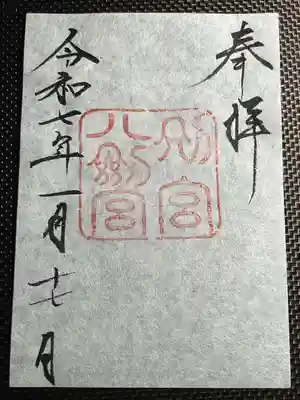 奉拝
別宮
八幡宮
令和七年一月十七日